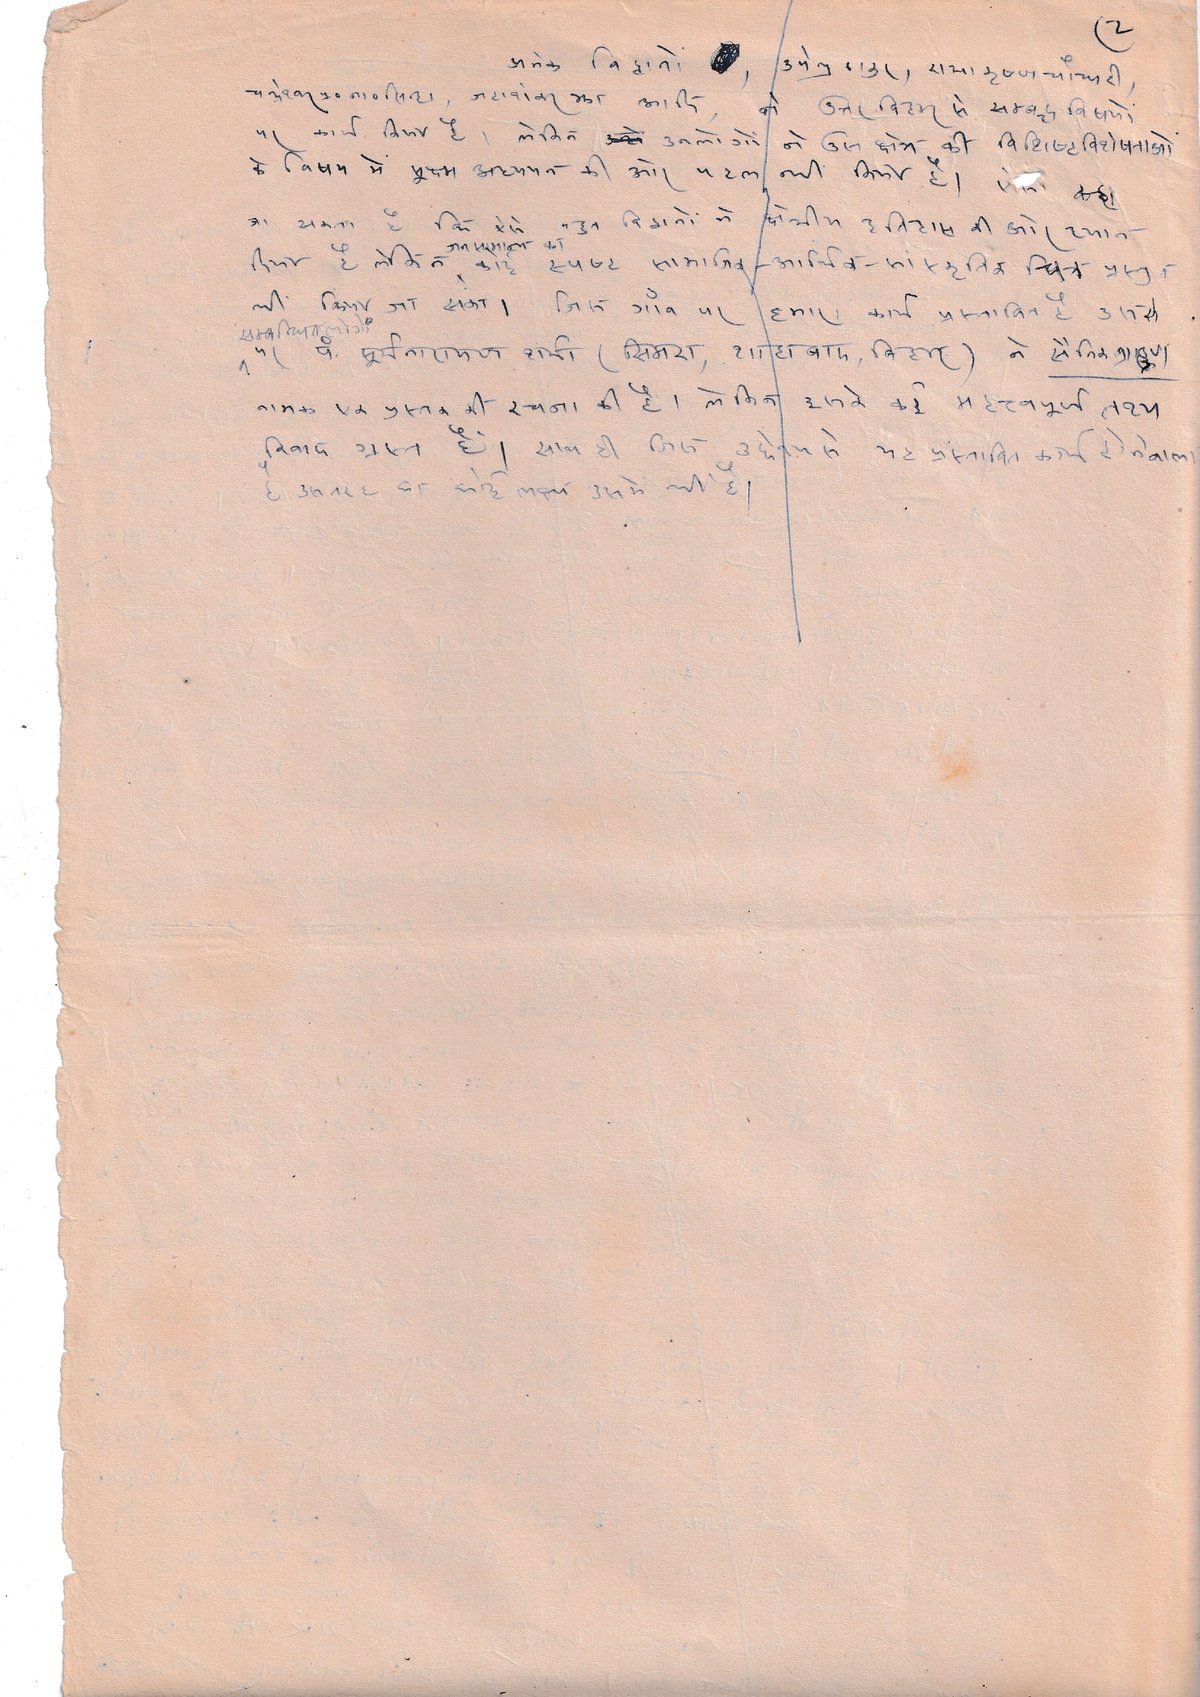 (2
अनेक विद्वानों , उपेन्द्र ठाकुर, राधाकृष्ण चौधरी,
जटाशंकर झा आदि, ने उत्तर बिहार से सम्बद्ध विषयों
पर कार्य किया है। लेकिन उनलोगों ने उस क्षेत्र की विशिष्ट विशेषताओं
के विषय में सूक्ष्म अध्ययन की ओर पहल नहीं किया है। ऐसा कहा
जा सकता है कि इन विद्वानों ने क्षेत्रीय इतिहास की ओर ध्यान
दिया है लेकिन जनसामान्य का कोई स्पष्ट सामाजिक-आर्थिक-सांस्कृतिक चित्र प्रस्तुत
नहीं किया जा सका। जिस गाँव पर हमारा कार्य प्रस्तावित है उससे
सम्बन्धित लोगों
पर पं. सूर्यनारायण शर्मा (सिमरा, शाहाबाद, बिहार) ने सैनिक ब्राह्मण
नामक एक पुस्तक की रचना की है। लेकिन इसके कई महत्वपूर्ण तथ्य
विवाद ग्रस्त हैं। साथ ही जिस उद्देश्य से यह प्रस्तावित कार्य होनेवाला
है उसतरह का कोई लक्ष्य उसमें नहीं है।